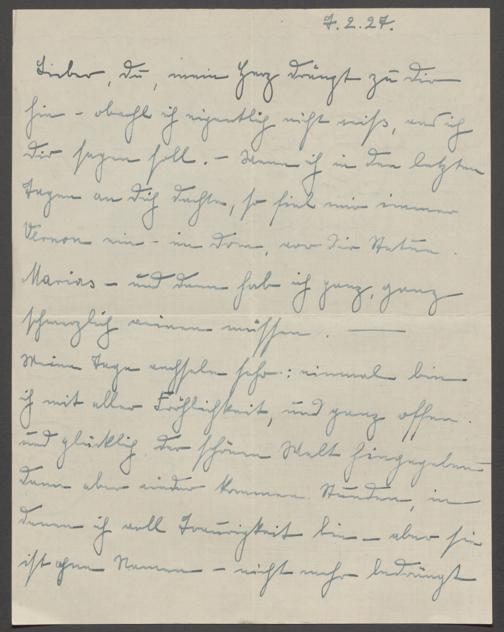 7.2.27.
Lieber, du, mein Herz drängt zu dir
hin – obwohl ich eigentlich nicht weiß, was ich
dir sagen soll. – Wenn ich in den letzten
Tagen an dich dachte, so fiel mir immer
Verona ein – im Dom, vor der Statue
Marias – und dann hab ich ganz, ganz
schmerzlich weinen müssen. —
Meine Tage wechseln sehr: einmal bin
ich mit aller Fröhlichkeit, und ganz offen
und glücklich der schönen Welt hingegeben
dann aber wieder kommen Stunden, in
denen ich voll Traurigkeit bin – aber sie
ist ohne Namen – nicht mehr bedrängt